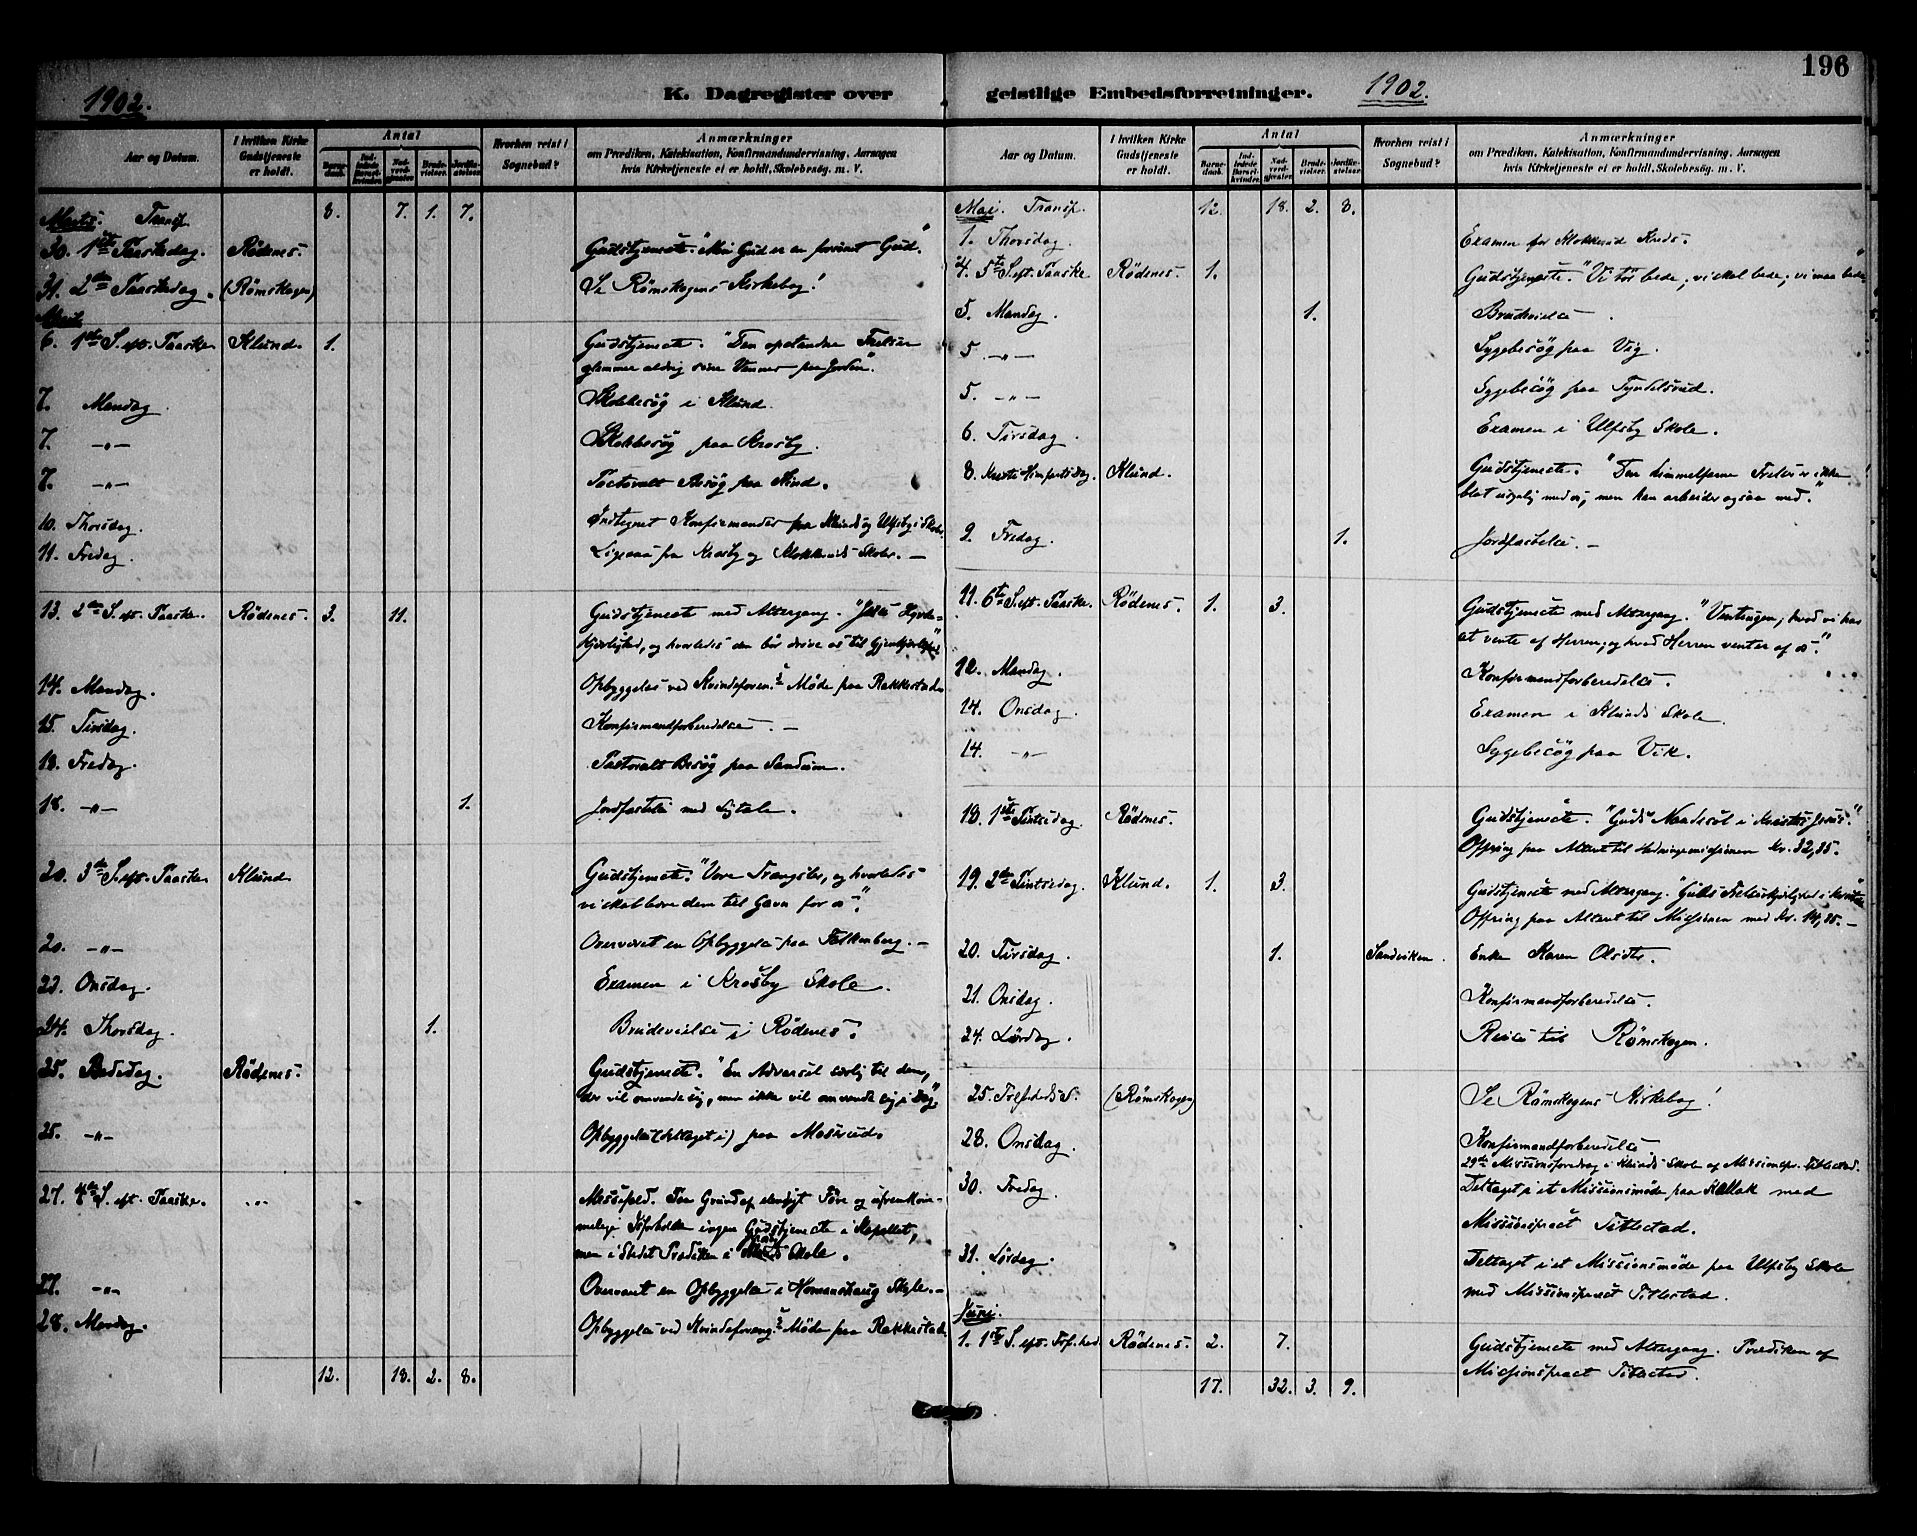 196
1902.
K. Dagregister over
Aar og Datum.
I hvilken Kirke Gudstjeneste er holdt.
Antal
Barne-daab.
Ind-ledede Barsel-kvinder.
Nad-verd-gjester.
Brude-vielser.
Jordfæ-stelser.
Hvorhen reist i Sognebud?
Anmærkninger
om Prædiken, Katekisation, Konfirmandundervisning, Aarsagen
hvis Kirketjeneste ei er holdt, Skolebesøg. m. V.
Marts. Transp. 8. 7. 1. 7.
30. 1ste Paaskedag. Rödenes. Gudstjeneste. "Min Gud er en forsont Gud."
31. 2den Paaskedag. (Römskogen) Se Römskogens Kirkebog!
April.
6. 1ste S. eft. Paaske. Klund. 1. Gudstjeneste. "Den opstandne Frelser
glemmer aldrig sine Venner paa Jorden".
7. Mandag. Skolebesög i Klund.
7. -"- Skolebesög paa Krosby.
7. -"- Pastoralt Besög paa Kind.
10. Thorsdag. Indtegnet Konfirmander fra Klund og Ulfsby i Skole.
11. Fredag. Ligesaa fra Krosby og Mokkerud Skoler. —
13. 2den S. eft. Paaske. Rödenes. 3. 11. Gudstjeneste med Altergang. "Jesu Hyrde-
kjærlighed, og hvorledes den bör drive os til Gjenkjærlighed"
14. Mandag. Opbyggelse ved Kvindeforen.s Møde paa Rakkestad.
15. Tirsdag. Konfirmandforberedelse. —
18. Fredag. Pastoralt Besög paa Sandum.
18. -"- 1. Jordfæstelse med Ligtale.
20. 3die S. eft. Paaske. Klund. Gudstjeneste. "Vore Trængsler, og hvorledes
vi skal bære dem til Gavn for os".
20. -"- Overværet en Opbyggelse paa Falkenberg. —
23. Onsdag. Examen i Krosby Skole.
24. Thorsdag. 1. Brudevielse i Rödenes.
25. Bededag. Rödenes. Gudstjeneste. "En Advarsel særlig til dem,
der vil omvende sig, men ikke vil omvende sig i Dag".
25. -"- Opbyggelse (deltaget i) paa Mosserud.
27. 4de S. eft. Paaske. ... Messefald. Paa Grund af elendigt Føre og ufremkom-
melige Isforholde ingen Gudstjeneste i Kapellet,
men i Stedet Prædiken i Skole.
27. -"- Overværet en Opbyggelse i Homanshaug Skole. —
28. Mandag. Opbyggelse ved Kvindeforeng.s Møde paa Rakkestad.
12. 18. 2. 8.
geistlige Embedsforretninger. 1902.
Aar og Datum.
I hvilken Kirke Gudstjeneste er holdt.
Antal
Barne-daab.
Ind-ledede Barsel-kvinder.
Nad-verd-gjester.
Brude-vielser.
Jordfæ-stelser.
Hvorhen reist i Sognebud?
Anmærkninger
om Prædiken, Katekisation, Konfirmandundervisning, Aarsagen
hvis Kirketjeneste ei er holdt, Skolebesøg. m. V.
Mai. Transp. 12. 18. 2. 8.
1. Thorsdag. Examen for Mokkerud Kreds.
4. 5te S. eft. Paaske Rödenes. 1. Gudstjeneste. "Vi tör bede; vi skal bede; vi maa bede"
5. Mandag. 1. Brudevielse.
5. -"- Sygebesög paa Vig.
5. -"- Sygebesög paa Tyndelsrud.
6. Tirsdag. Examen i Ulfsby Skole.
8. Kristi Himfartsdag. Klund. Gudstjeneste. "Den himmelfarne Frelser er ikke
blot usynlig med os, men han arbeider ogsaa med."
9. Fredag. 1. Jordfæstelse. —
11. 6te S. eft. Paaske. Rödenes. 1. 3. Gudstjeneste med Altergang. "Ventingen; hvad vi har
at vente af Herren; og hvad Herren venter af os".
12. Mandag. Konfirmandforberedelse.
14. Onsdag. Examen i Klunds Skole.
14. -"- Sygebesög paa Vik.
18. 1ste Pintsedag. Rödenes. Gudstjeneste. "Guds Naadesol i Kristus Jesus."
Offring paa Alteret til Hedningemissionen kr. 32,85.
19. 2den Pintsedag. Klund. 1. 3. Gudstjeneste med Altergang. "Guds Frelserkjærlighed i Kristus"
Offring paa Alteret til Missionen med kr. 14,85. —
20. Tirsdag. 1. Sandviken. Enke Karen Olsdtr.
21. Onsdag. Konfirmandforberedelse.
24. Lördag. Reise til Römskogen.
25. Trefoldeds S. (Römskogen) Se Römskogens Kirkebog!
28. Onsdag. Konfirmandforberedelse.
29de Missionsforedrag i Klunds Skole af Missionspr. Titlestad.
30. Fredag. Deltaget i et Missionsmøde paa Kallak med
Missionsprest Titlestad.
31. Lördag. Deltaget i et Missionsmøde paa Ulfsby Skole
med Missionsprest Titlestad.
Juni.
1. 1ste S. eft. Tref.hed. Rödenes. 2. 7. Gudstjeneste med Altergang. Prædiken af
Missionsprest Titlestad.
17. 32. 3. 9.